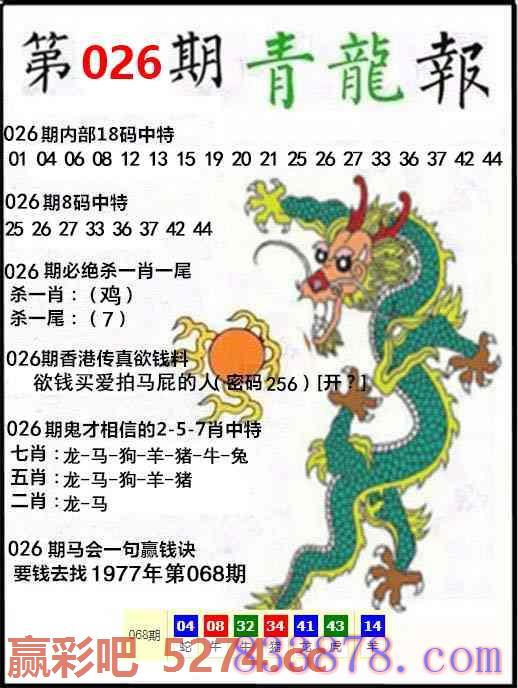 第026期 青龍報
026期内部18码中特
01 04 06 08 12 13 15 19 20 21 25 26 27 33 36 37 42 44
026期8码中特
25 26 27 33 36 37 42 44
026 期必绝杀一肖一尾
杀一肖：（鸡）
杀一尾：（7）
026期香港传真欲钱料
欲钱买爱拍马屁的人（密码256）[开？]
026期鬼才相信的2-5-7肖中特
七肖：龙-马-狗-羊-猪-牛-兔
五肖：龙-马-狗-羊-猪
二肖：龙-马
026 期马会一句赢钱诀
要钱去找1977年第068期
068期 04 08 32 34 41 43 14
蛇 牛 牛 猪 龙 虎 羊
赢彩吧 5274.cc
853878.com